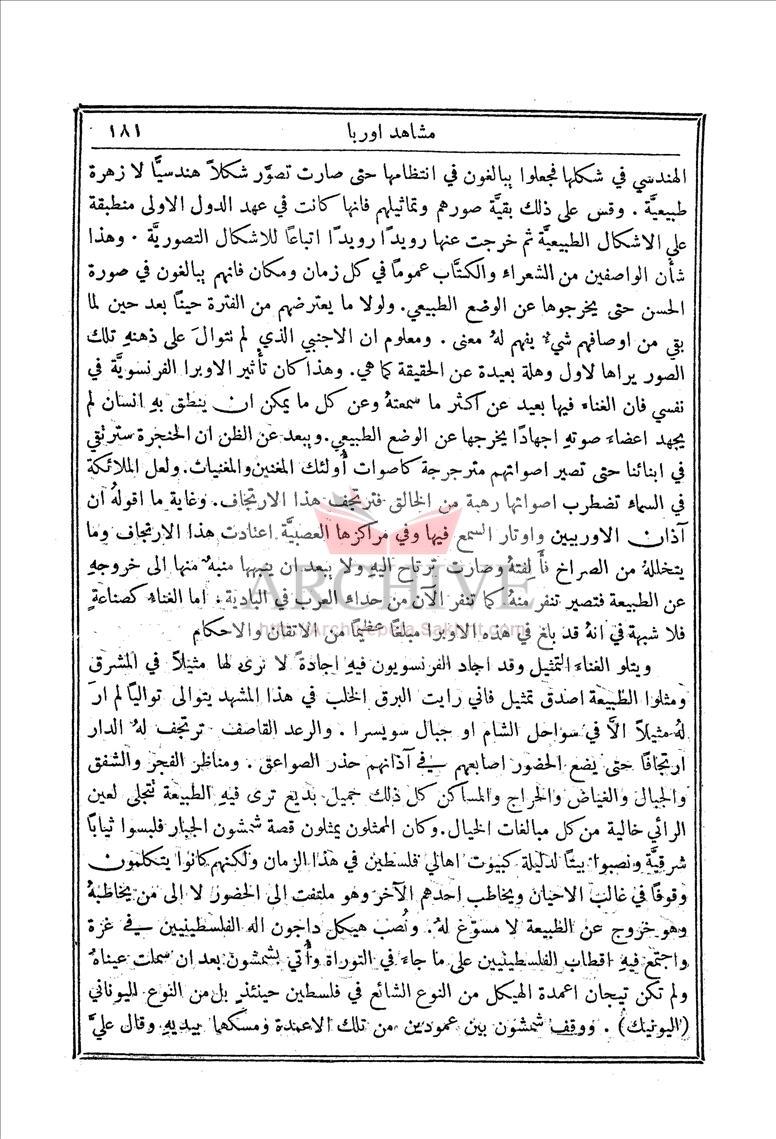 مشاهد اوربا ١٨١
الهندسي في شكلها فجعلوا يبالغون في انتظامها حتى صارت تصوَّر شكلاً هندسيًّا لا زهرة
طبيعيَّة . وقس على ذلك بقيَّة صورهم وتماثيلهم فانها كانت في عهد الدول الاولى منطبقة
على الاشكال الطبيعيَّة ثم خرجت عنها رويدًا رويدًا اتباعًا للاشكال التصوريَّة . وهذا
شأن الواصفين من الشعراء والكتَّاب عمومًا في كل زمان ومكان فانهم يبالغون في صورة
الحسن حتى يخرجوها عن الوضع الطبيعي. ولولا ما يعترضهم من الفترة حينًا بعد حين لما
بقي من اوصافهم شيءٌ يفهم لهُ معنى . ومعلوم ان الاجنبي الذي لم نتوالَ على ذهنهِ تلك
الصور يراها لاول وهلة بعيدة عن الحقيقة كما هي. وهذا كان تأثير الاوبرا الفرنسويَّة في
نفسي فان الغناء فيها بعيد عن اكثر ما سمعتهُ وعن كل ما يمكن ان ينطق بهِ انسان لم
يجهد اعضاء صوتهِ اجهادًا يخرجها عن الوضع الطبيعي. ويبعد عن الظن ان الحنجرة سترتقي
في ابنائنا حتى تصير اصواتهم مترجرجة كاصوات أُولئك المغنين والمغنيات. ولعل الملائكة
في السماء تضطرب اصواتها رهبة من الخالق فترتجف هذا الارتجاف. وغاية ما اقولهُ ان
آذان الاوربيين واوتار السمع فيها وفي مراكزها العصبيَّة اعتادت هذا الارتجاف وما
يتخللهُ من الصراخ فأَلِفتهُ وصارت ترتاح اليهِ ولا يبعد ان ينبهها منبهٌ منها الى خروجهِ
عن الطبيعة فتصير تنفر منهُ كما تنفر الآن من حداء العرب في البادية . اما الغناء كصناعةٍ
فلا شبهة في انهُ قد بلغ في هذه الاوبرا مبلغًا عظيمًا من الاتقان والاحكام
ويتلو الغناء التمثيل وقد اجاد الفرنسويون فيهِ اجادةً لا نرى لها مثيلاً في المشرق
ومثلوا الطبيعة اصدق تمثيل فاني رايت البرق الخلب في هذا المشهد يتوالى تواليًا لم ارَ
لهُ مثيلاً الاَّ في سواحل الشام او جبال سويسرا . والرعد القاصف ترتجف لهُ الدار
ارتجافًا حتى يضع الحضور اصابعهم في آذانهم حذر الصواعق . ومناظر الفجر والشفق
والجبال والغياض والحراج والمساكن كل ذلك جميل بديع ترى فيهِ الطبيعة تتجلى لعين
الرائي خالية من كل مبالغات الخيال. وكان الممثلون يمثلون قصة شمشون الجبار فلبسوا ثيابًا
شرقيَّة ونصبوا بيتًا لدليلة كبيوت اهالي فلسطين في هذا الزمان ولكنهم كانوا يتكلمون
وقوفًا في غالب الاحيان ويخاطب احدهم الآخر وهو ملتفت الى الحضور لا الى من يخاطبهُ
وهو خروج عن الطبيعة لا مسوّغ لهُ . ونُصب هيكل داجون اله الفلسطينيين في غزة
واجتمع فيهِ اقطاب الفلسطينيين على ما جاءَ في التوراة وأُتي بشمشون بعد ان سملت عيناهُ
ولم تكن تيجان اعمدة الهيكل من النوع الشائع في فلسطين حينئذٍ بل من النوع اليوناني
(اليونيك) . ووقف شمشون بين عمودين من تلك الاعمدة ومسكها بيديهِ وقال عليَّ
ARCHIVE
http://Archivebeta.Sakhrit.com